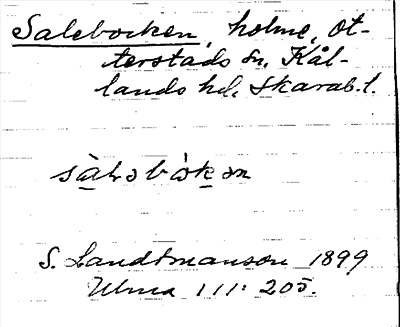 Salebocken, holme, Ot-
terstads sn. Kål-
lands hd. Skarab.l.
sàləbòkən
S. Landtmanson 1899
Ulma 111: 205.